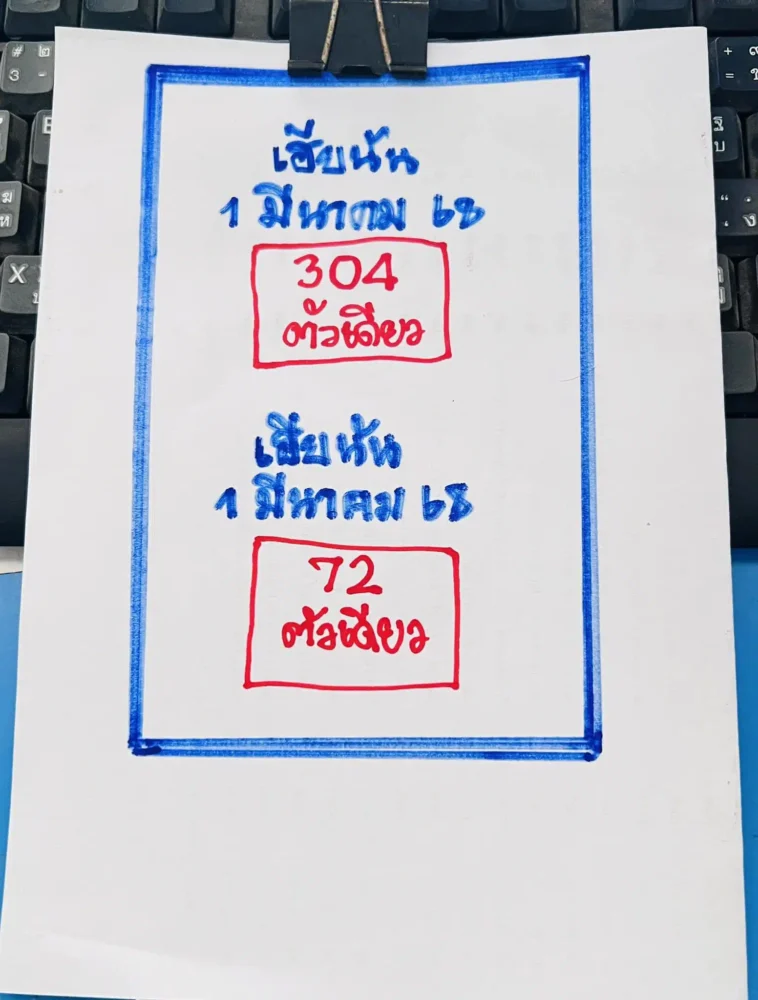 เฮียนัน
1 มีนาคม 68
304
ตัวเดียว
เฮียนัน
1 มีนาคม 68
72
ตัวเดียว